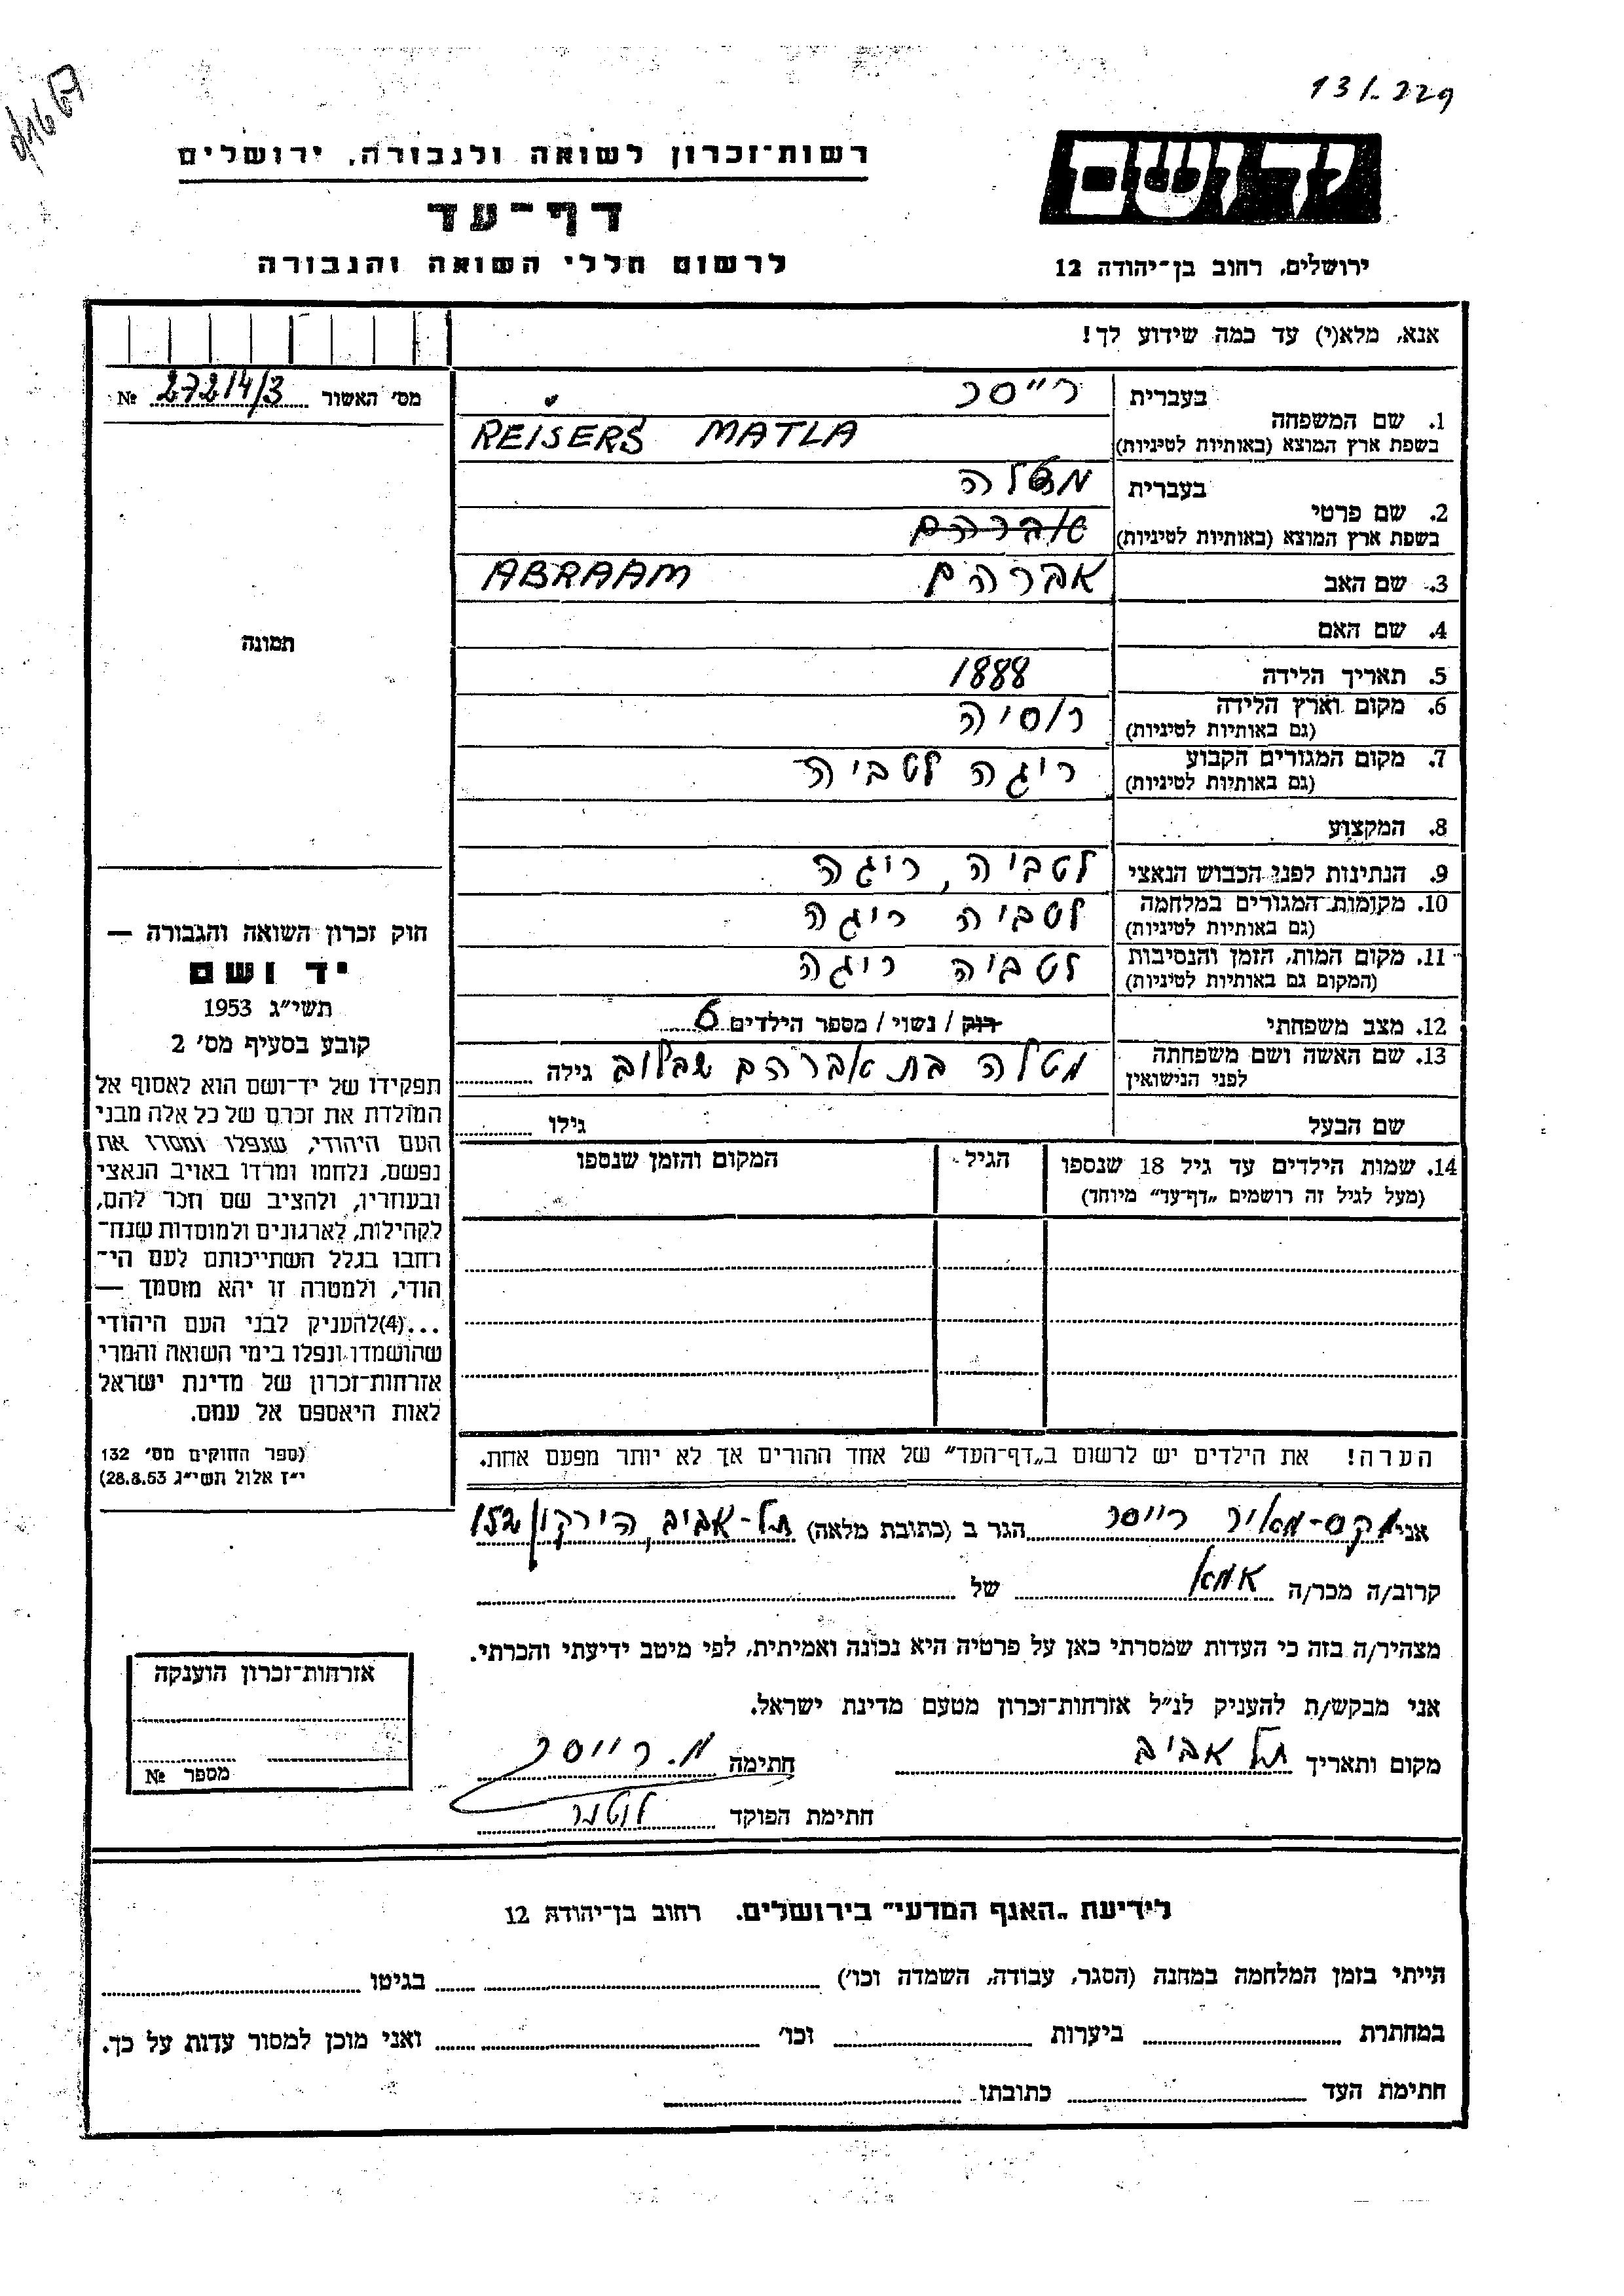 131-229
רשות-זכרון לשואה ולגבורה, ירושלים
דף-עד
לרשום חללי השואה והגבורה
יד ושם
ירושלים, רחוב בן-יהודה 12
אנא, מלא(י) עד כמה שידוע לך!
מס' האשור 27214/3 №
תמונה
1. שם המשפחה
בעברית רייסר
בשפת ארץ המוצא (באותיות לטיניות) REISERS MATLA
2. שם פרטי
בעברית מטלה
בשפת ארץ המוצא (באותיות לטיניות)
3. שם האב אברהם ABRAAM
4. שם האם
5. תאריך הלידה 1888
6. מקום וארץ הלידה רוסיה
(גם באותיות לטיניות)
7. מקום המגורים הקבוע ריגה לטביה
(גם באותיות לטיניות)
8. המקצוע
9. הנתינות לפני הכבוש הנאצי לטביה, ריגה
10. מקומות המגורים במלחמה לטביה ריגה
(גם באותיות לטיניות)
11. מקום המות, הזמן והנסיבות לטביה ריגה
(המקום גם באותיות לטיניות)
12. מצב משפחתי רוק / נשוי / מספר הילדים 6
13. שם האשה ושם משפחתה מטלה בת אברהם שבלוב גילה
לפני הנישואין
שם הבעל גילו
14. שמות הילדים עד גיל 18 שנספו הגיל המקום והזמן שנספו
(מעל לגיל זה רושמים "דף-עד" מיוחד)
הערה! את הילדים יש לרשום ב"דף-העד" של אחד ההורים אך לא יותר מפעם אחת.
חוק זכרון השואה והגבורה —
יד ושם
תשי"ג 1953
קובע בסעיף מס' 2
תפקידו של יד-ושם הוא לאסוף אל
המולדת את זכרם של כל אלה מבני
העם היהודי, שנפלו ומסרו את
נפשם, נלחמו ומרדו באויב הנאצי
ובעוזריו, ולהציב שם וזכר להם,
לקהילות, לארגונים ולמוסדות שנח-
רחבו בגלל השתייכותם לעם הי-
הודי, ולמטרה זו יהא מוסמך —
...(4) להעניק לבני העם היהודי
שהושמדו ונפלו בימי השואה והמרי
אזרחות-זכרון של מדינת ישראל
לאות היאספם אל עמם.
(ספר החוקים מס' 132
י"ז אלול תשי"ג 28.8.53)
אני מקס-מאיר רייסר הגר ב (כתובת מלאה) תל-אביב, הירקון 152
קרוב/ה מכר/ה אמא של
מצהיר/ה בזה כי העדות שמסרתי כאן על פרטיה היא נכונה ואמיתית, לפי מיטב ידיעתי והכרתי.
אני מבקש/ת להעניק לנ"ל אזרחות-זכרון מטעם מדינת ישראל.
מקום ותאריך תל אביב חתימה מ. רייסר
חתימת הפוקד
אזרחות-זכרון הוענקה
מספר №
לידיעת "האגף המדעי" בירושלים. רחוב בן-יהודה 12
הייתי בזמן המלחמה במחנה (הסגר, עבודה, השמדה וכו') בגיטו
במחתרת ביערות וכו' ואני מוכן למסור עדות על כך.
חתימת העד כתובתו